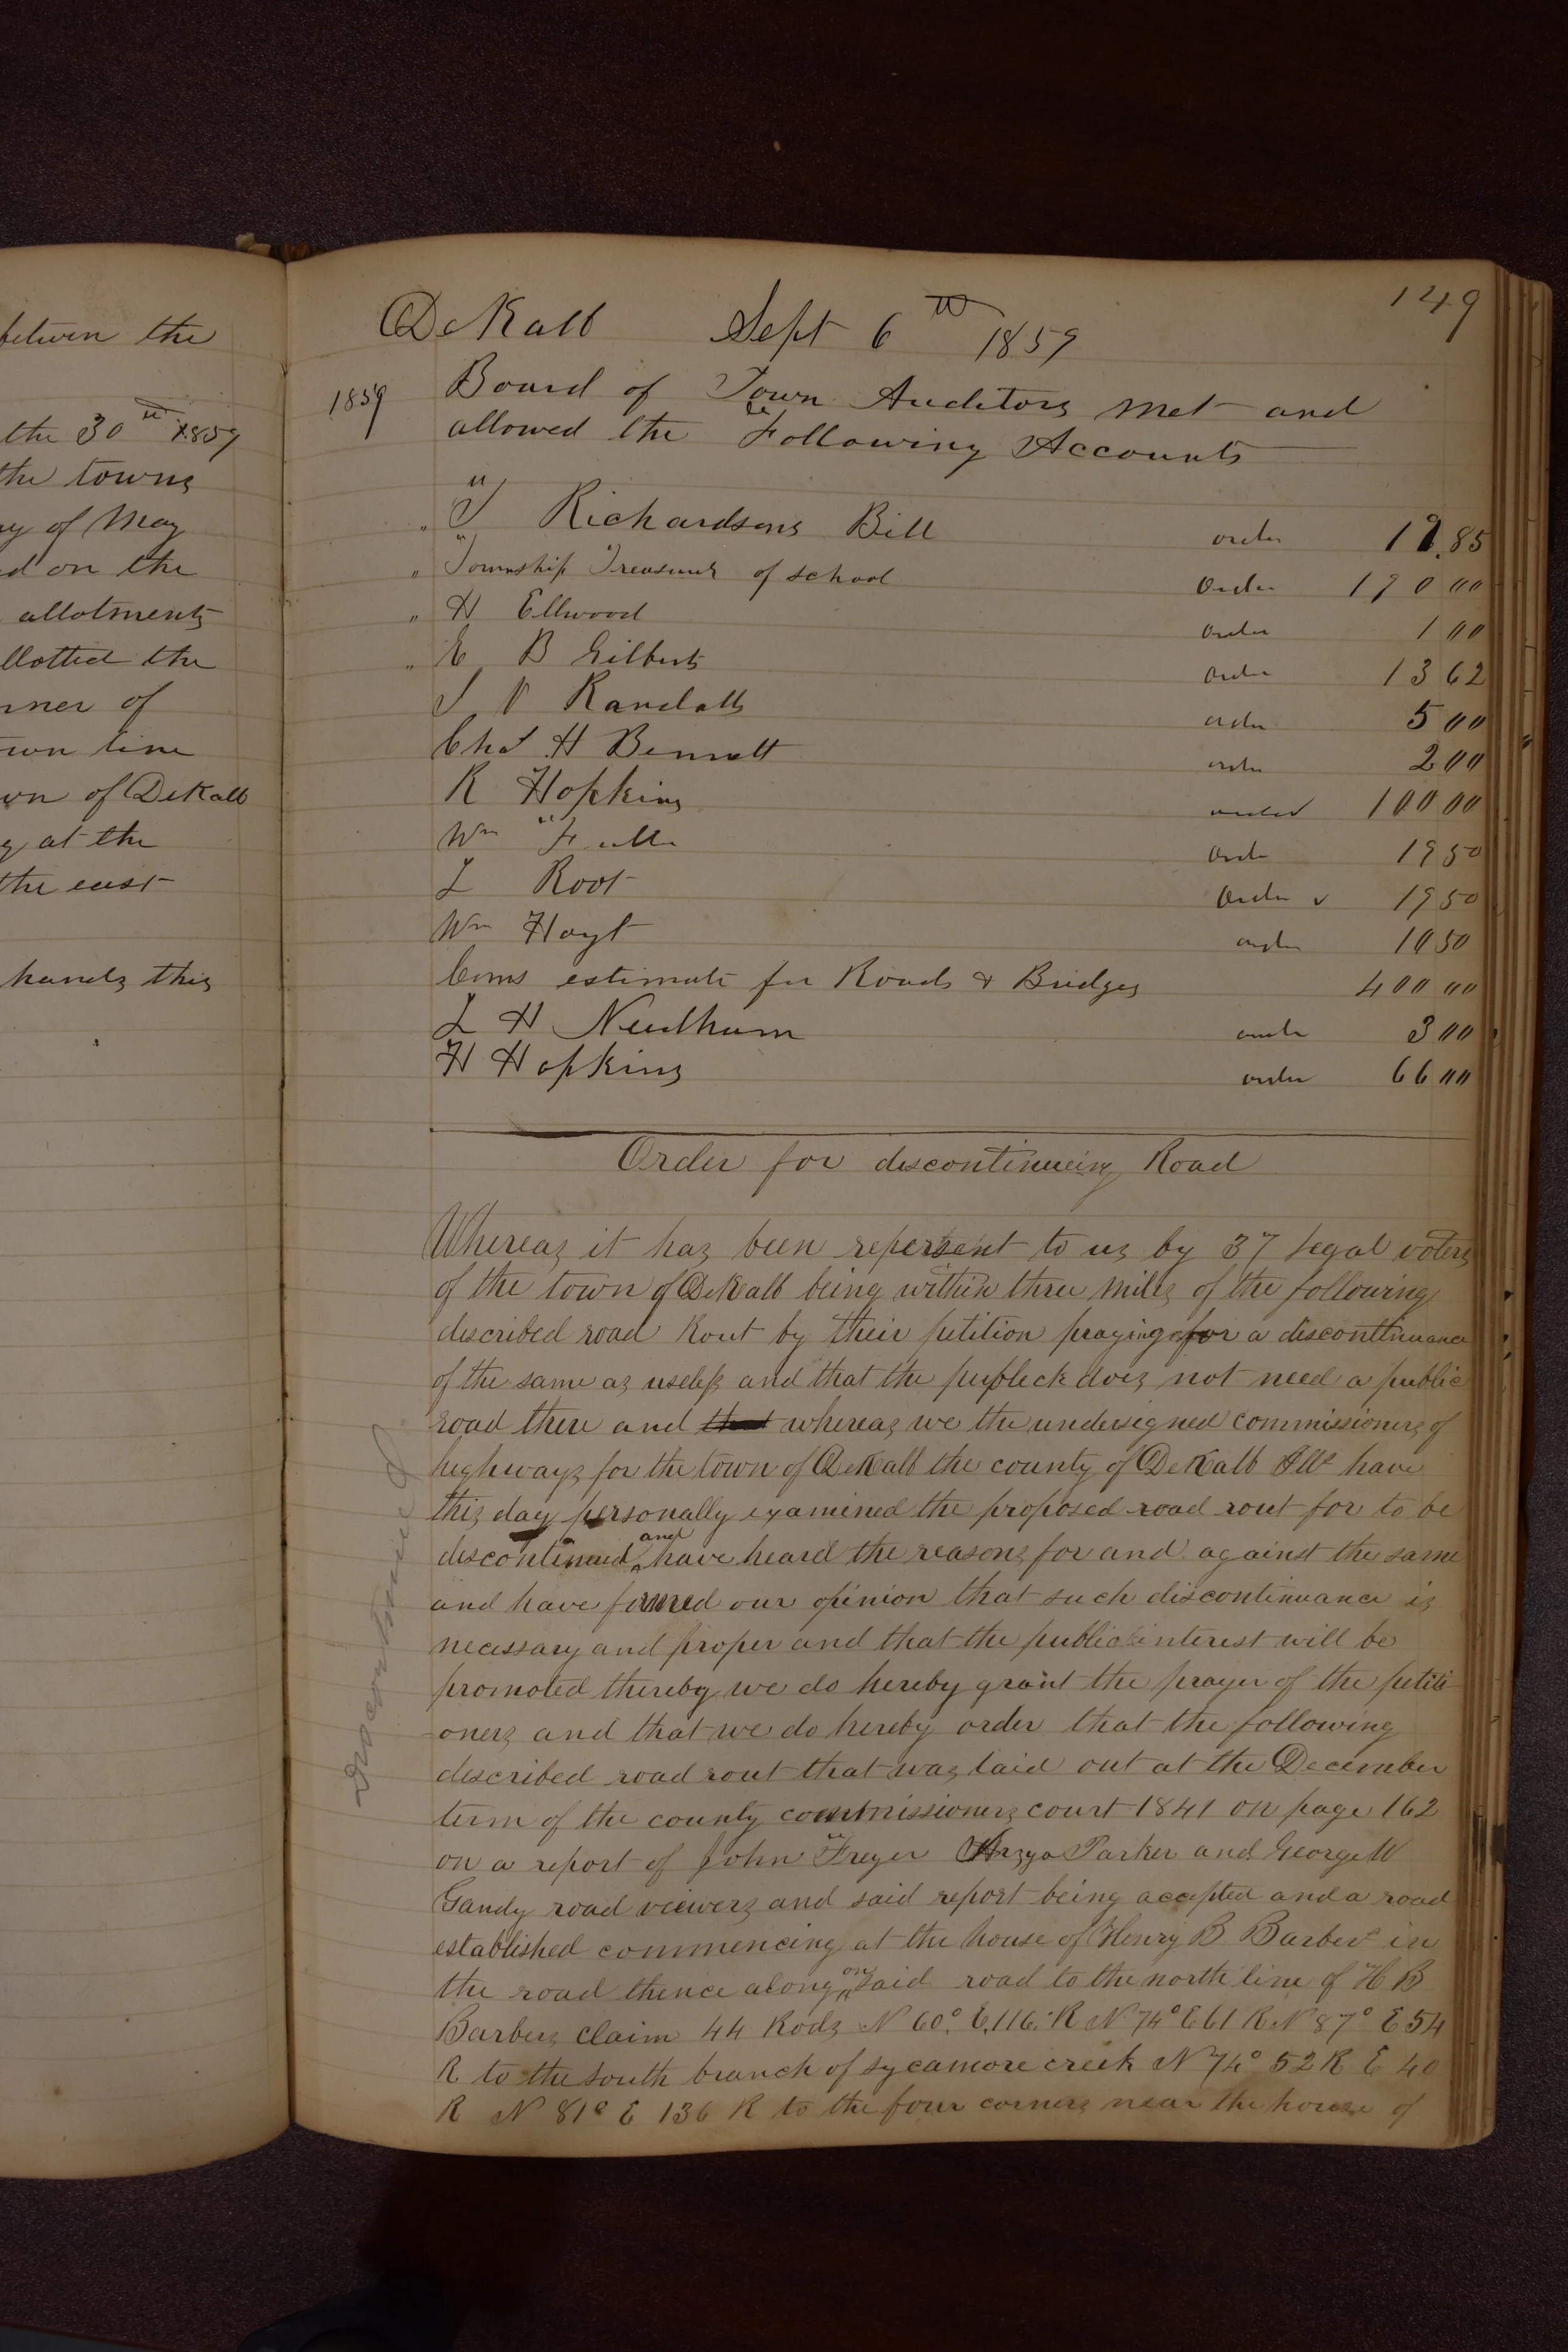 betwen the
the 30th 1859
the towns
ay of May
ed on the
allotments
llotted the
rner of
own line
wn of DeKalb
g at the
the east
hands this
149
DeKalb Sept 6th 1859
1859 Board of Town Auditors met and
allowed the Following Accounts
" Richardsons Bill order .85
" Township Treasurer of school Order 190 00
" H Ellwood order 1 00
" E B Gilberts order 13 62
S V Randalls order 5 00
Chas H Bennett order 2 00
R Hopkins order 100 00
Wm Fuller Order 19 50
L Root Order v 19 50
Wm Hoyt order 10 50
Coms estimate for Roads & Bridges 400 00
L H Needham order 3 00
H Hopkins order 66 00
Order for discontinueing Road
Whereas it has been repersent to us by 37 legal voters
of the town of DeKalb being within three miles of the following
described road Rout by their petition praying for a discontinuance
of the same as useless and that the publick does not need a public
road there and that whereas we the undersigned commissioners of
highways for the town of DeKalb the county of DeKalb Ills have
this day personally examined the proposed road rout for to be
discontinued and have heard the reasons for and against the same
and have formed our opinion that such discontinuance is
necessary and proper and that the public interest will be
promoted thereby we do hereby grant the prayer of the petiti
oners and that we do hereby order that the following
described road rout that was laid out at the December
term of the county commissioners court 1841 on page 162
on a report of John Freyer Arzya Parker and George W
Gandy road viewers and said report being accepted and a road
established commencing at the house of Henry B Barber in
the road thence along on said road to the north line of H B
Barbers claim 44 Rods N 60° E 116 R N 74° E 61 R N 87° E 54
R to the south branch of sycamore creek N 74° 52 R E 40
R N 81° E 136 R to the four corners near the house of
Discontinued